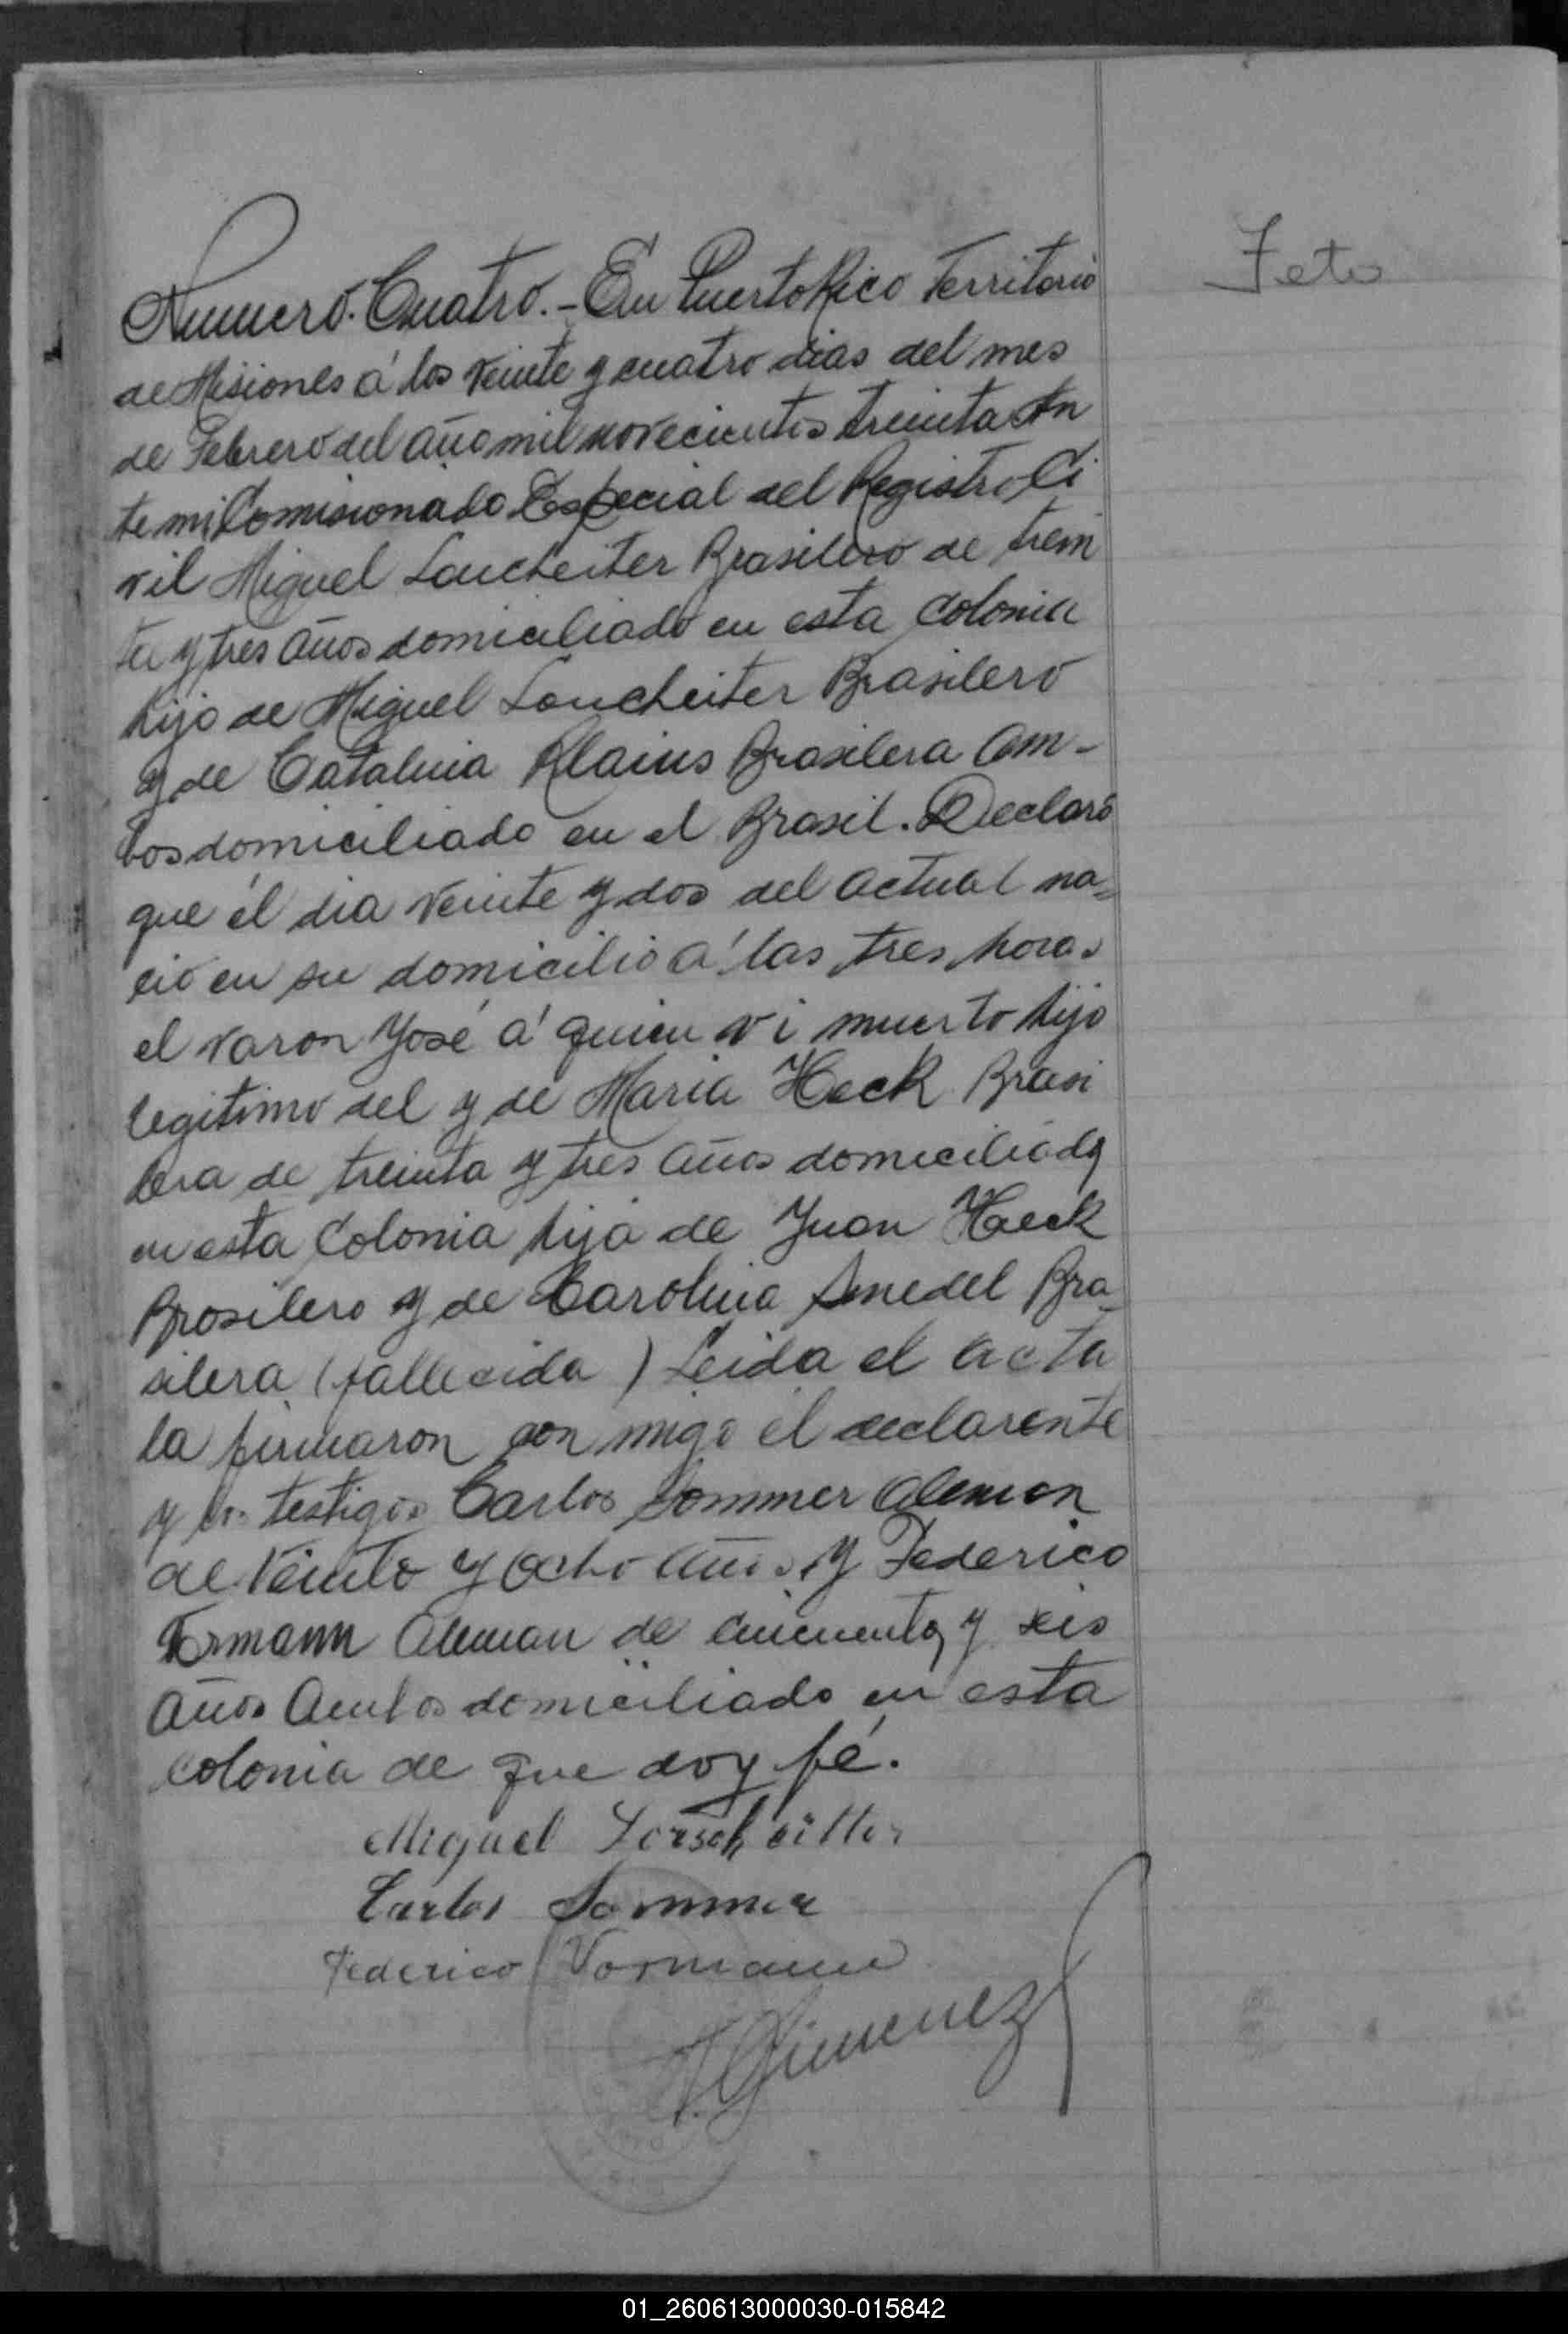 Feto
Numero. Cuatro.- En Puerto Rico Territorio
de Misiones á los veinte y cuatro dias del mes
de Febrero del año mil novecientos treinta An
te mi Comisionado Especial del Registro Ci
vil Miguel Loucheiter Brasilero de trein
ta y tres años domiciliado en esta Colonia
hijo de Miguel Loucheiter Brasilero
y de Catalina Klaius Brasilera Am-
bos domiciliado en el Brasil. Declaró
que él dia veinte y dos del actual na=
cio en su domicilio á las tres horas
el varon José á quien vi muerto hijo
legitimo del y de Maria Heck Brasi
lera de treinta y tres años domiciliada
en esta Colonia hija de Juan Haeck
Brasilero y de Carolina Smedel Bra
silera (fallecida) Leida el acta
la firmaron con migo el declarente
y los testigos Carlos Sommer Aleman
de Veinte y ocho Años y Federico
Formann Aleman de Cincuenta y seis
Años Ambos domiciliado en esta
Colonia de que doy fé.
Miguel Lorscheitter
Carlos Sommer
Federico Vormann
Gimenez
01_260613000030-015842